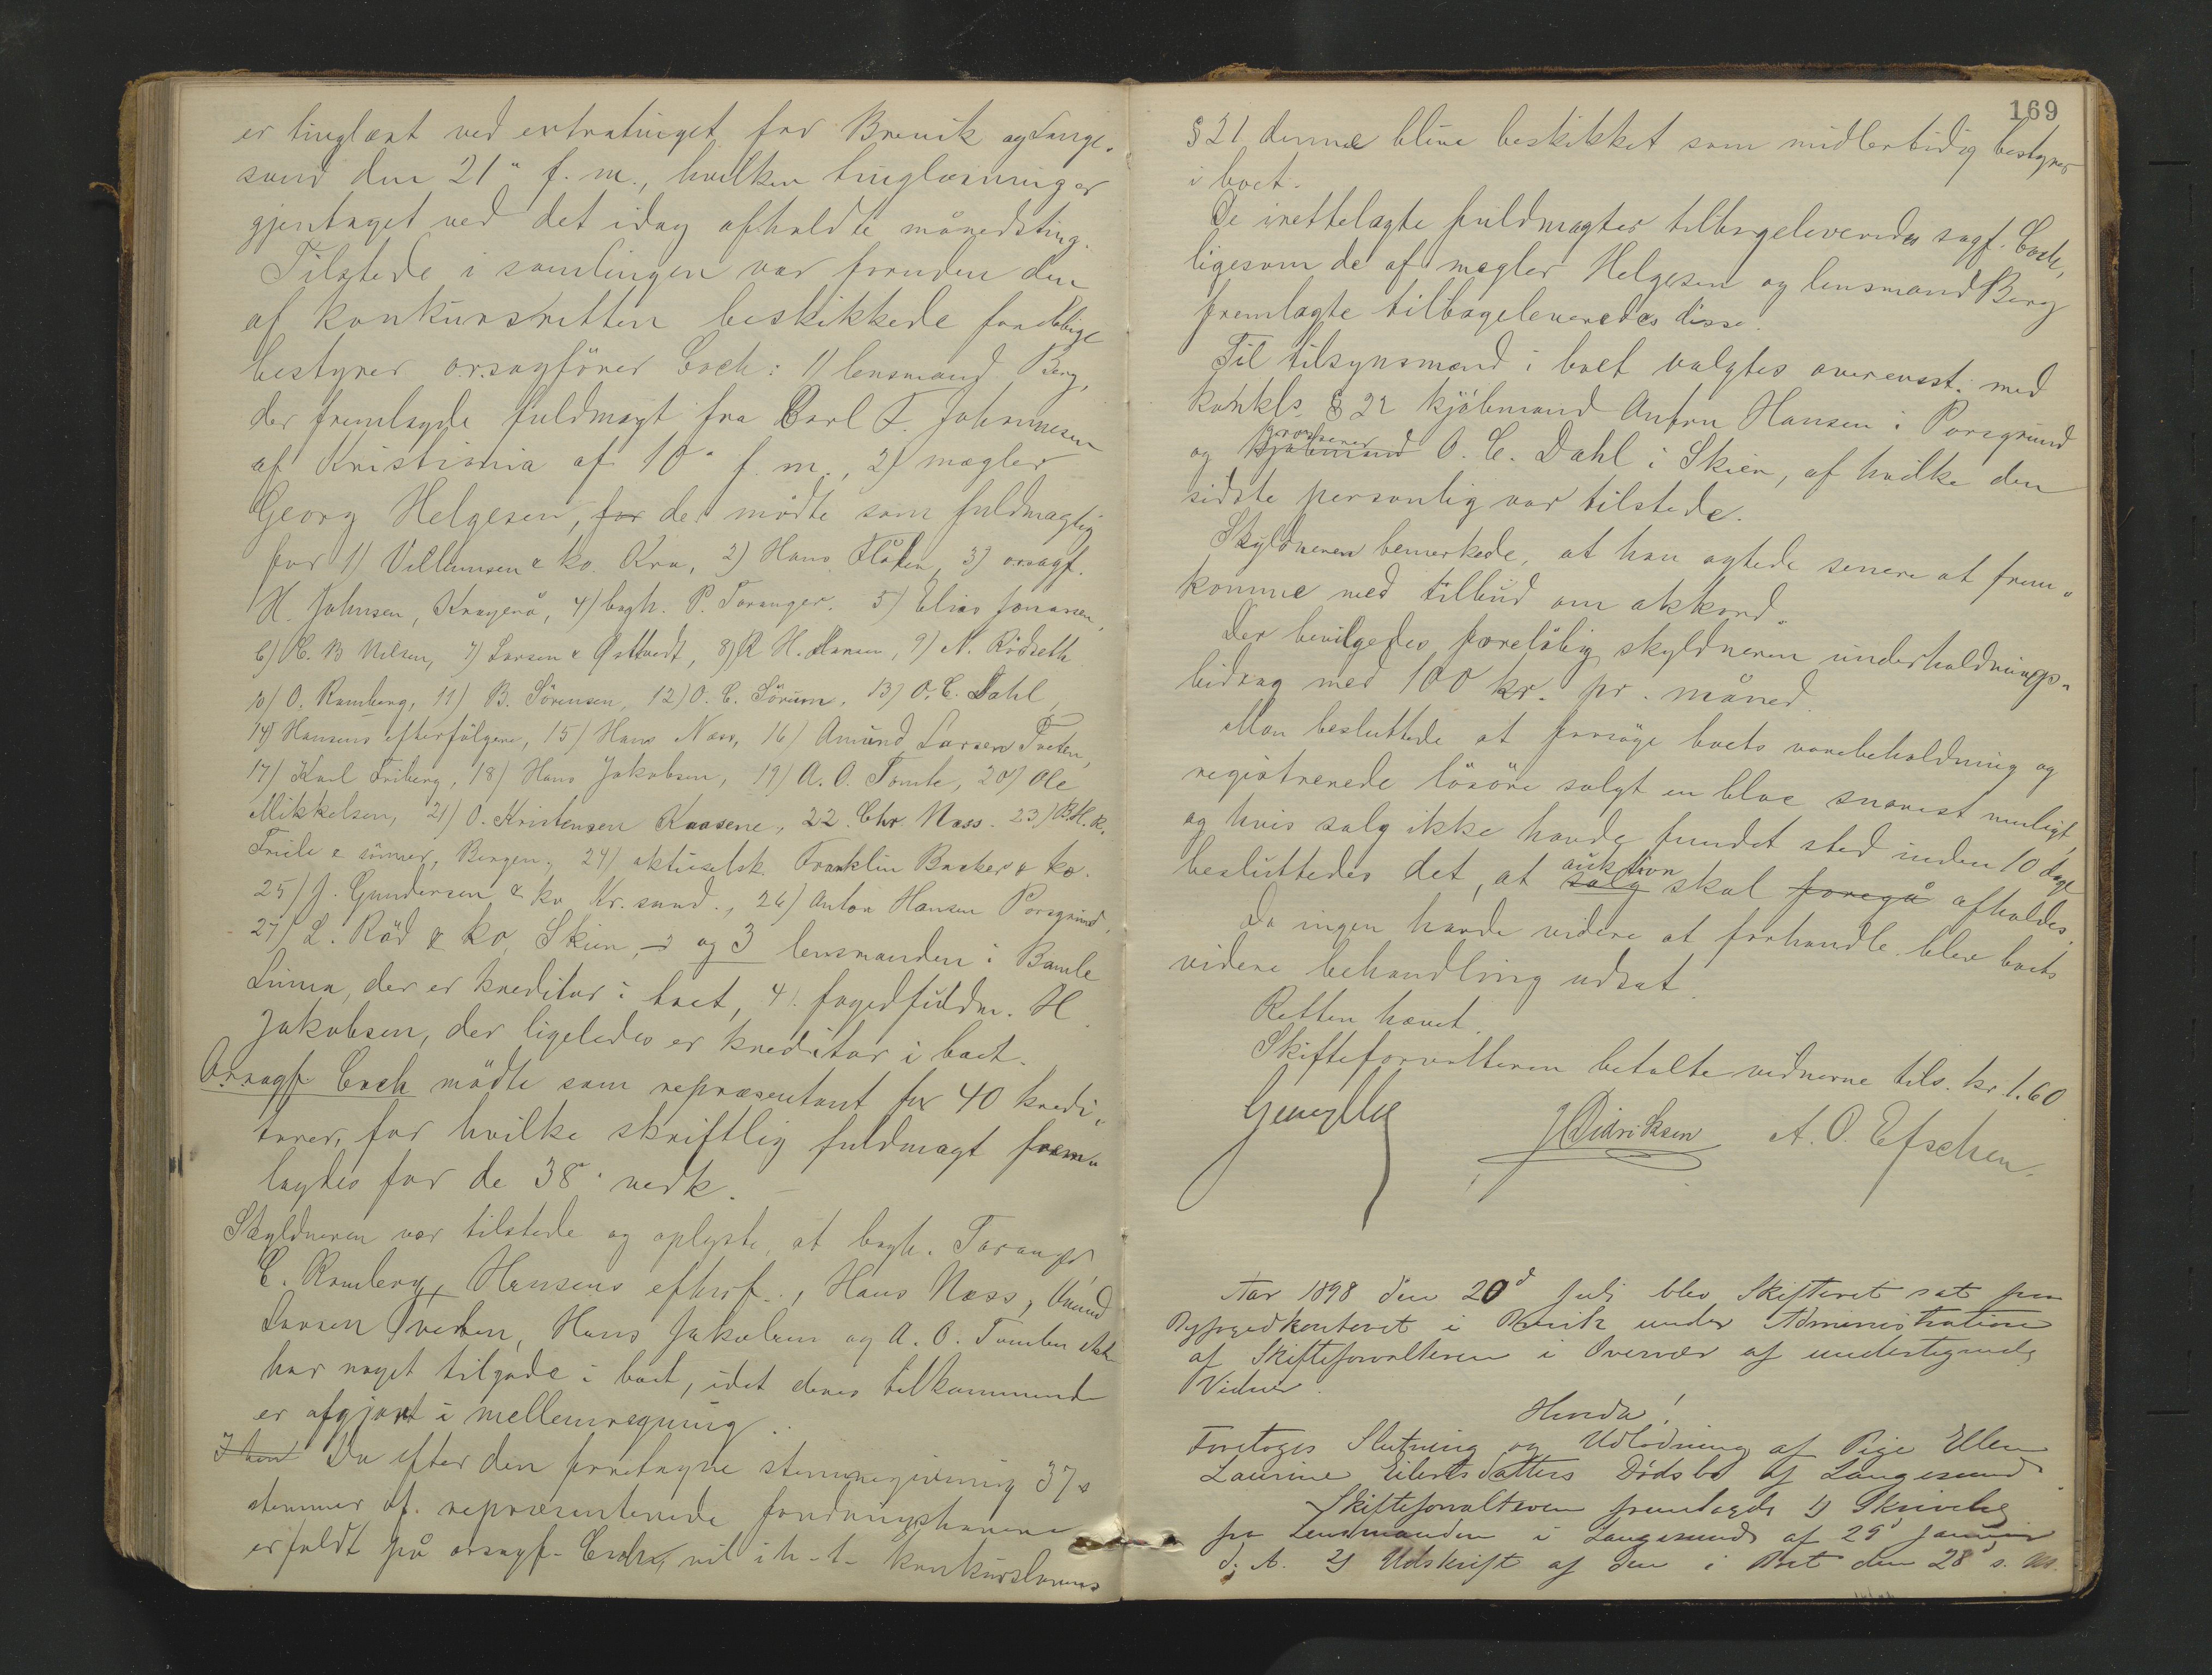 er tinglæst ved extratinget for Brevik og Lange-
sund den 21" f. m., hvilken tinglæsning er
gjentaget ved det idag afholdte månedsting.
Tilstede i samlingen var foruden den
af konkursretten beskikkede foreløbige
bestyrer orsagfører Coch: 1) lensmand Berg,
der fremlagde fuldmagt fra Carl F. Johannesen
af Kristiania af 10" f. m., 2) mægler
Georg Helgesen, for der mødte som fuldmægtig
for 1) Villumsen & ko. Kra, 2) Hans Flåten, 3) orsagf.
H. Johnsen, Kragerø, 4) bagh. P. Taranger, 5) Elias Jonassen,
6) C. B Nilsen, 7) Larsen & Østtvedt, 8) R H. Hansen, 9) N. Rødseth
10) O. Ramberg, 11) B. Sørensen, 12) O. C. Sørum, 13) O. C. Dahl,
14) Hansens efterfølgere, 15) Hans Næss, 16) Amund Larsen Tveten,
17) Karl Friberg, 18) Hans Jakobsen, 19) A. O. Tomte, 20) Ole
Mikkelsen, 21) O. Kristensen Kaasene, 22. Chr. Næss. 23) B. H. R.
Friele & sønner, Bergen, 24) aktieselsk. Franklin Backer & ko.
25) J. Gundersen & ko Kr. sand., 26) Anton Hansen Porsgrund,
27) L. Råd & ko, Skien, og 3 lensmanden i Bamle
Linna, der er kreditor i boet, 4) fogedfuldm. H
Jakobsen, der ligeledes er kreditor i boet.
Orsagf Coch mødte som repræsentant for 40 kredi-
torer, for hvilke skriftlig fuldmagt frem-
lagdes for de 38" vedk.
Skyldneren var tilstede og oplyste, at bagh. Taranger,
C. Ramberg, Hansens efterf., Hans Næss, Amund
Larsen Tveten, Hans Jakobsen og A. O. Tomten ikke
har noget tilgode i boet, idet deres tilkommende
er afgjort i mellemregning.
I hen Da efter den foretagne stemmegivning 37
stemmer af repræsenterede fordringshavere
er faldt på orsagf. Coch, vil i h. t. konkurslovens
169
§ 21 denne blive beskikket som midlertidig bestyrer
i boet.
De irettelagte fuldmagter tilbageleveredes sagf. Coch,
ligesom de af mægler Helgesen og lensmand Berg
fremlagte tilbageleveredes disse.
Til tilsynsmænd i boet valgtes overensst. med
konkls. § 22 kjøbmand Anton Hansen i Porsgrund
og kjøbmand grosserer O. C. Dahl i Skien, af hvilke den
sidste personlig var tilstede.
Skyldneren bemerkede, at han agtede senere at frem-
komme med tilbud om akkord.
Der bevilgedes foreløbig skyldneren underholdnings-
bidrag med 100 kr. pr. måned.
Man besluttede at forsøge boets varebeholdning og
registrerede løsøre solgt en bloc snarest muligt,
og hvis salg ikke havde fundet sted inden 10 dage
besluttedes det, at salg auktion skal foregå afholdes.
Da ingen havde videre at forhandle blev boets
videre behandling udsat.
Retten hævet.
Skifteforvalteren betalte vidnerne tils. kr. 1.60
J Didriksen A. O. Efschen.
Aar 1898 den 20d Juli blev Skifteret sat paa
Byfogedkontoret i Brevik under Administration
af Skifteforvalteren i Overvær af undertegnede
Vidner.
Hvorda!
Foretoges Slutning og Udlodning af Pige Ellen
Laurine Eilertsdatters Dødsbo af Langesund
Skifteforvalteren fremlagde 1) Skrivelse
fra Lensmanden i Langesund af 29d Januar
d. A. 2) Udskrift af den i Boet den 28d s. M.